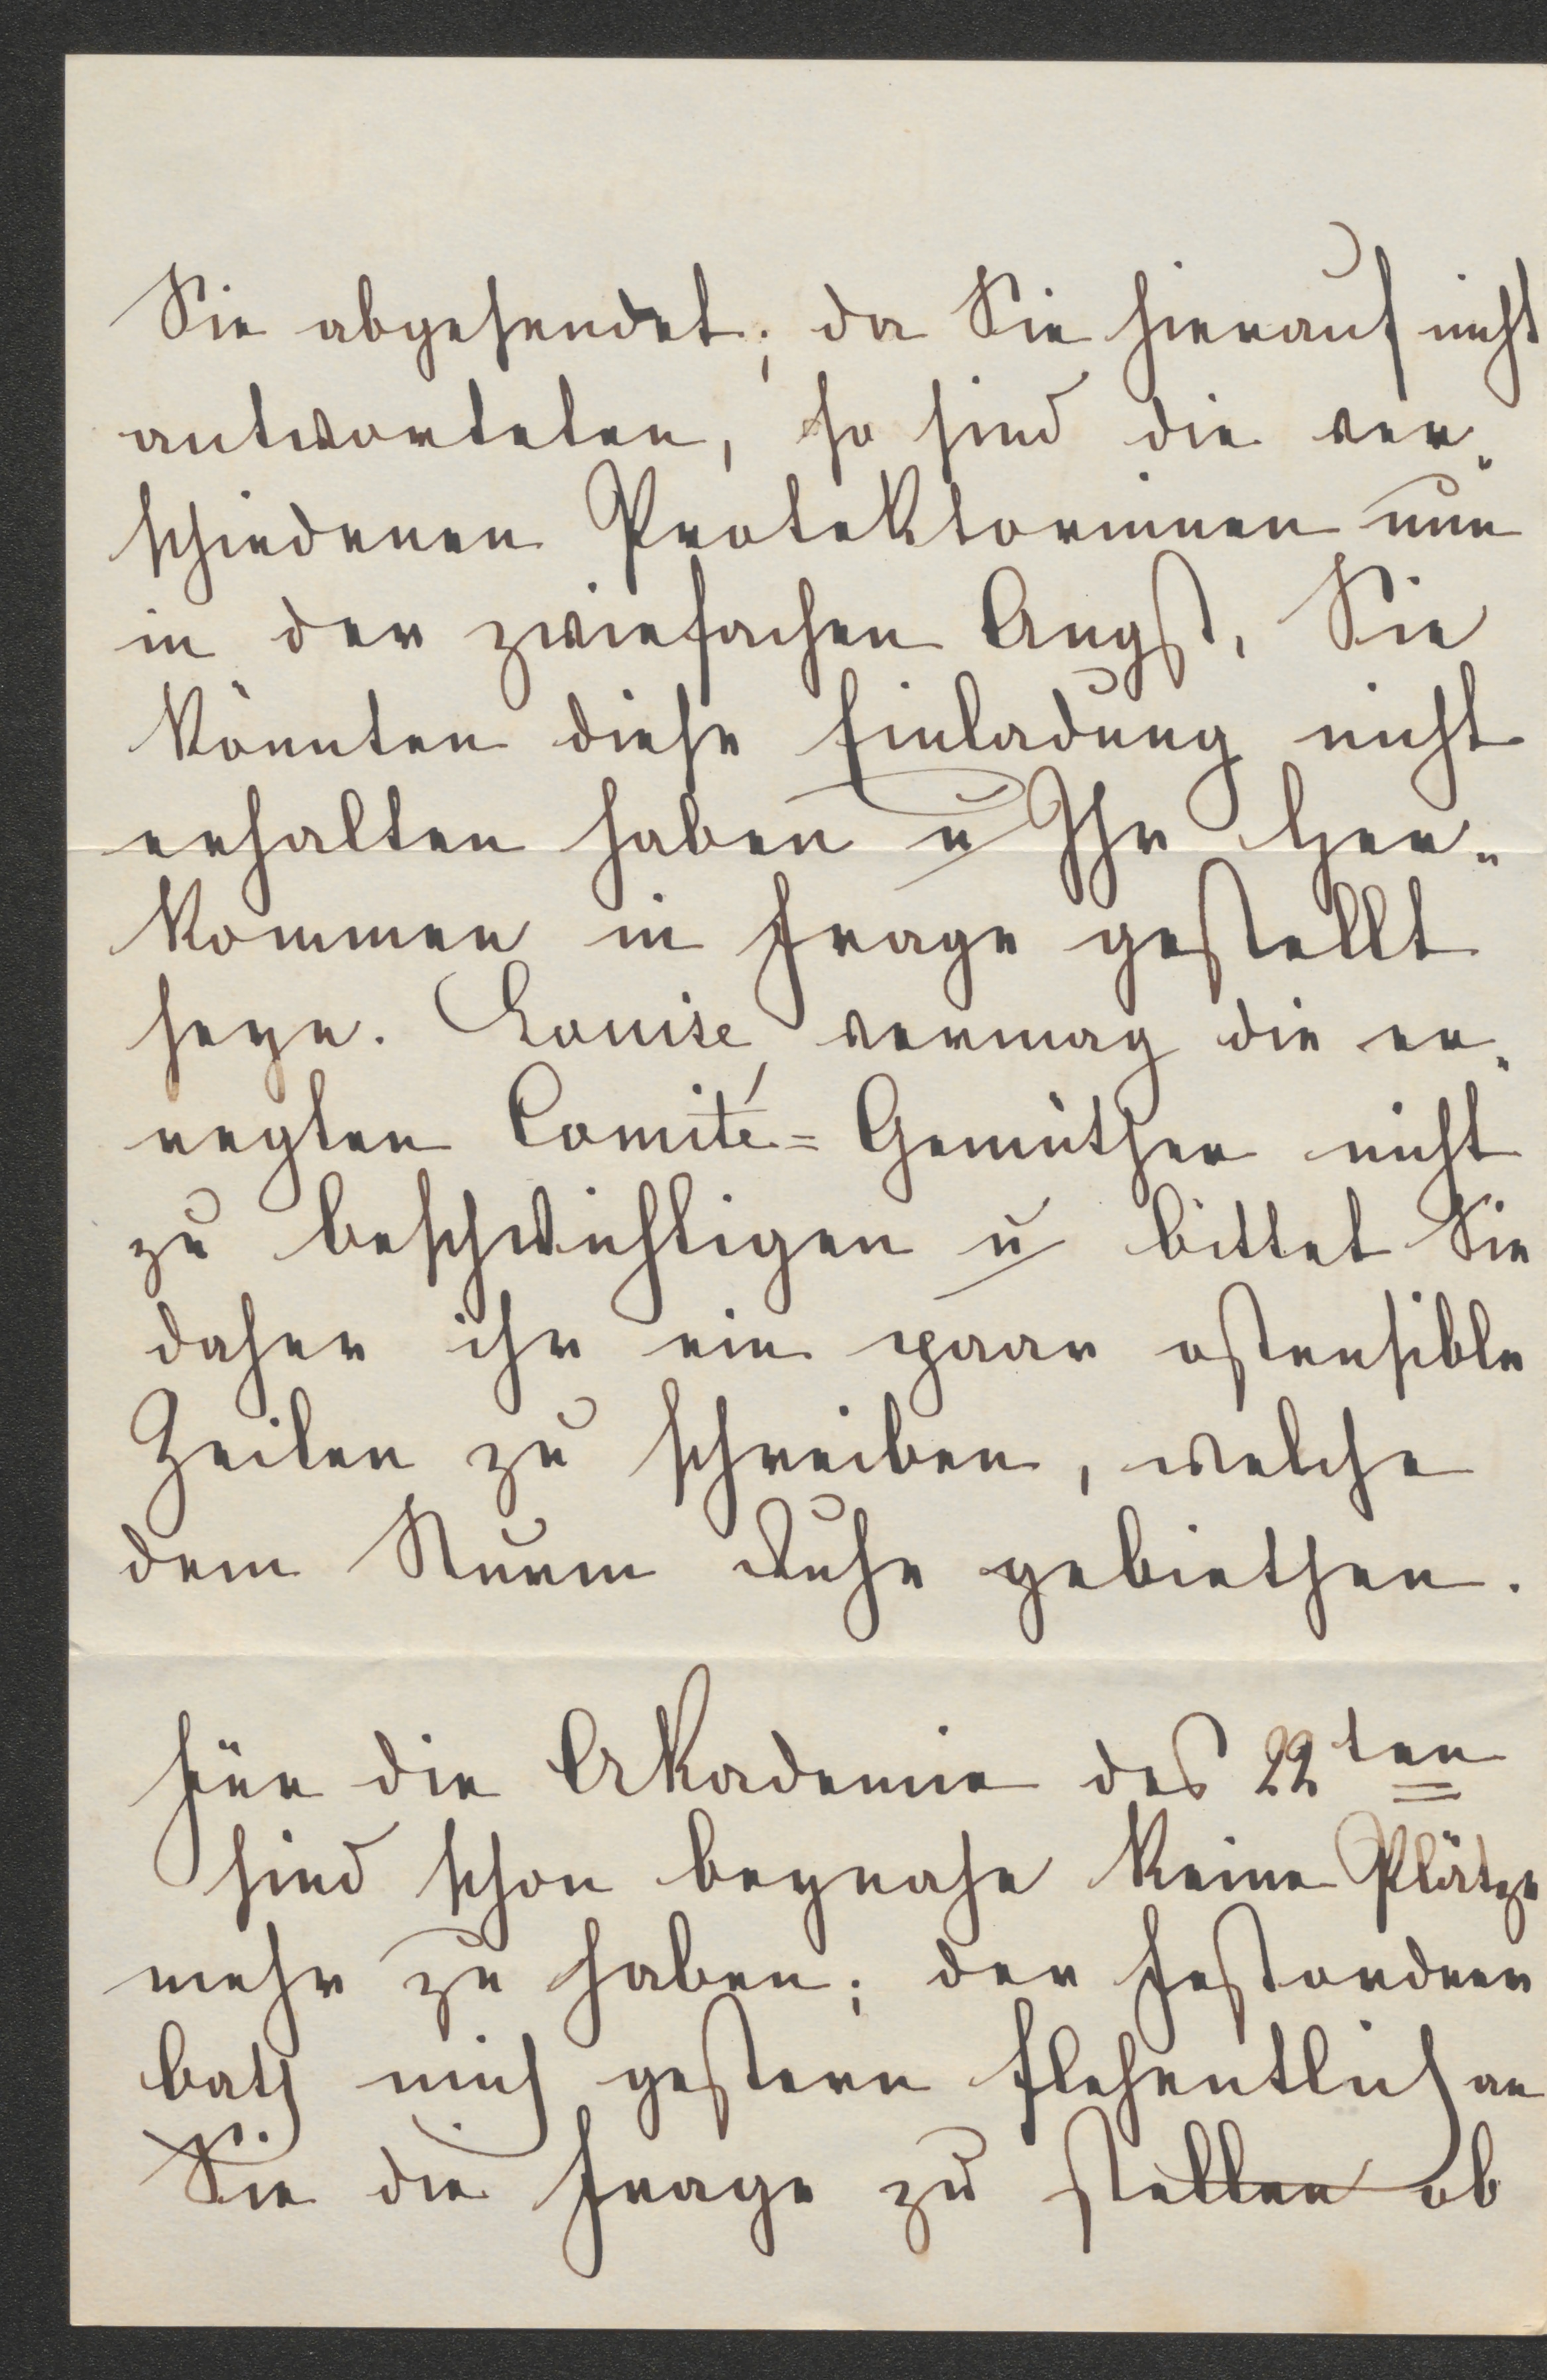 Sie abgesendet; da Sie hierauf nicht
antworteten, so sind die ver„
schiedenen Protektorinnen nun
in der zwiefachen Angst, Sie
könnten diese Einladung nicht
erhalten haben u Ihr Her„
kommen in Frage gestellt
seye. Louise vermag die er„
regten Comité=Gemüther nicht
zu beschwichtigen u bittet Sie
daher ihr ein paar ostensible
Zeilen zu schreiben, welche
dem Sturm Ruhe gebiethen.
Für die Akademie des 22ten
sind schon beynahe keine Plätze
mehr zu haben; der Festordner
bath mich gestern flehentlich an
Sie die Frage zu stellen ob